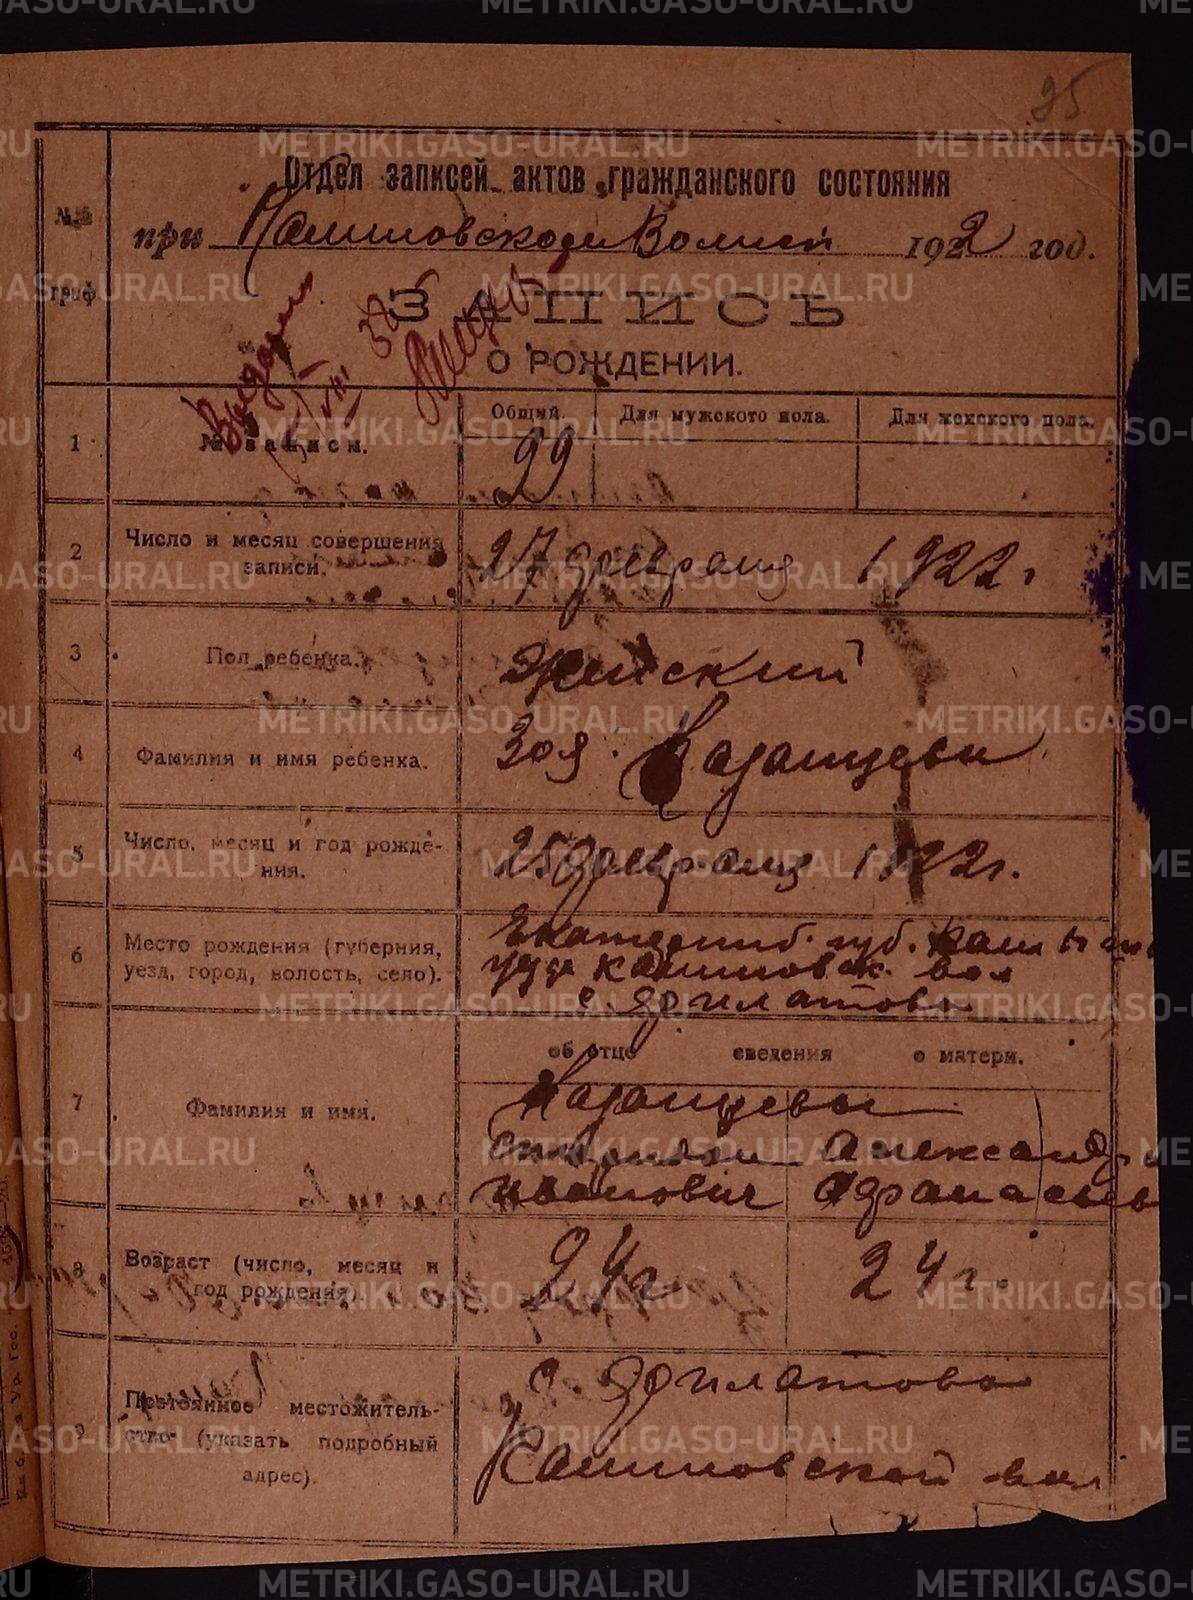 95
Отдел записей актов гражданского состояния
при Калиновской Волисп 1922 год.
№№ граф
ЗАПИСЬ
О РОЖДЕНИИ.
1 № записи. Общий. Для мужского пола. Для женского пола.
99
2 Число и месяц совершения записи. 27 февраля 1922 г
3 Пол ребенка. Женский
4 Фамилия и имя ребенка. Зоя Казанцевы
5 Число, месяц и год рожде-
ния. 25 февраля 1922 г.
6 Место рождения (губерния,
уезд, город, волость, село).
Екатеринб. губ. Камышл
уезд Калиновск. вол
с. Филатово
об отце сведения о матери.
7 Фамилия и имя.
Казанцевы
Спиридон Александра
Иванович Афанасьев
8 Возраст (число, месяц и
год рождения). 24 г. 24 г.
9 Постоянное местожитель-
ство (указать подробный
адрес).
с. Филатово
Калиновской вол